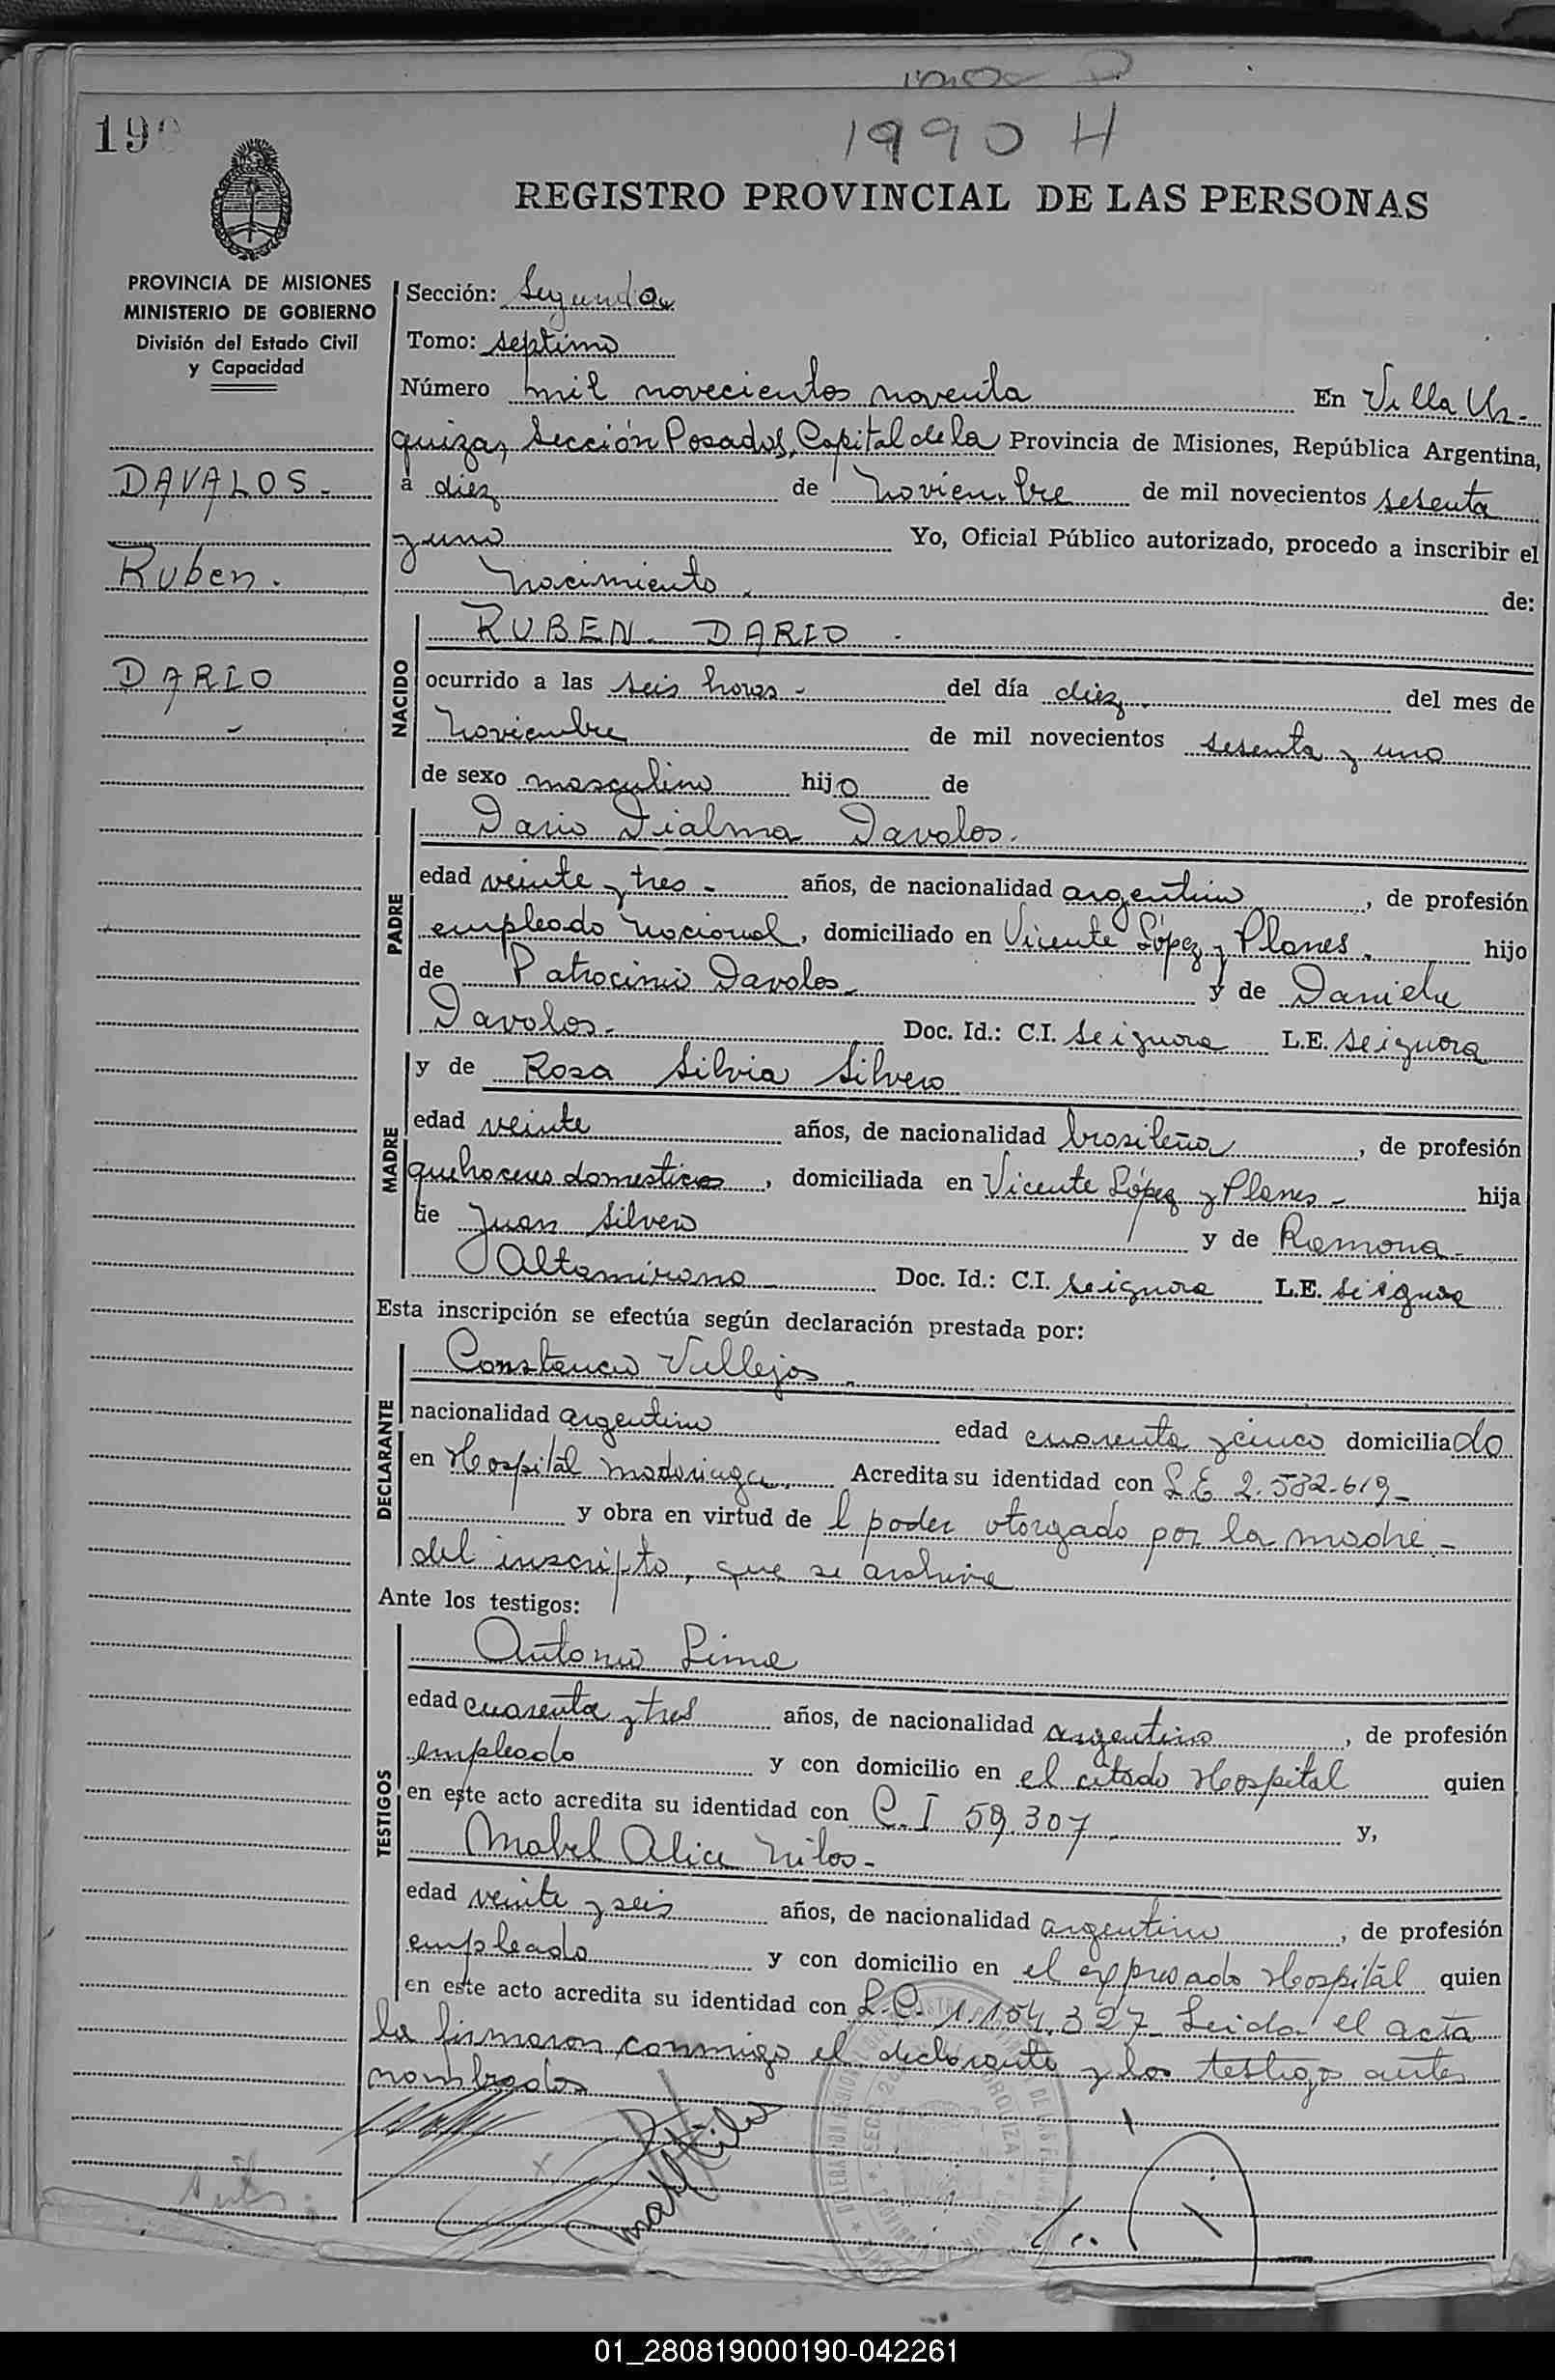 1990 H
190
REGISTRO PROVINCIAL DE LAS PERSONAS
PROVINCIA DE MISIONES
MINISTERIO DE GOBIERNO
División del Estado Civil
y Capacidad
DAVALOS.-
Ruben.
DARIO
-
Sección: Segunda
Tomo: septimo
Número mil novecientos noventa En Villa Ur-
quiza, Sección Posadas, Capital de la Provincia de Misiones, República Argentina,
a diez de Noviembre de mil novecientos setenta
y uno Yo, Oficial Público autorizado, procedo a inscribir el
Nacimiento. de:
NACIDO
RUBEN DARIO.
ocurrido a las seis horas - del día diez. del mes de
Noviembre de mil novecientos setenta y uno
de sexo masculino hijo de
PADRE
Dario Dialma Davalos.
edad veinte y tres - años, de nacionalidad argentino, de profesión
empleado nacional, domiciliado en Vicente López y Planes. hijo
de Patrocinio Davalos y de Daniela
Davalos.- Doc. Id.: C.I. se ignora L.E. se ignora
MADRE
y de Rosa Silvia Silvero
edad veinte años, de nacionalidad brasileña, de profesión
quehaceres domesticos, domiciliada en Vicente López y Planes - hija
de Juan Silvero y de Ramona
Altamirano - Doc. Id.: C.I. se ignora L.E. se ignora
Esta inscripción se efectúa según declaración prestada por:
DECLARANTE
Constancio Vallejos.
nacionalidad argentino edad cuarenta y cinco domiciliado
en Hospital Madariaga Acredita su identidad con L.E 2.582.619-
y obra en virtud de l poder otorgado por la madre.-
del inscripto, que se archiva
Ante los testigos:
TESTIGOS
Antonio Lima
edad cuarenta y tres años, de nacionalidad argentino, de profesión
empleado y con domicilio en el citado Hospital quien
en este acto acredita su identidad con C.I 59.307 y,
Mabel Alice Nilos-
edad veinte y seis años, de nacionalidad argentino, de profesión
empleado y con domicilio en el expresado Hospital quien
en este acto acredita su identidad con L.C. 1.154.327- Leida el acta
la firmaron conmigo el declarante y los testigos antes
nombrados
01_280819000190-042261